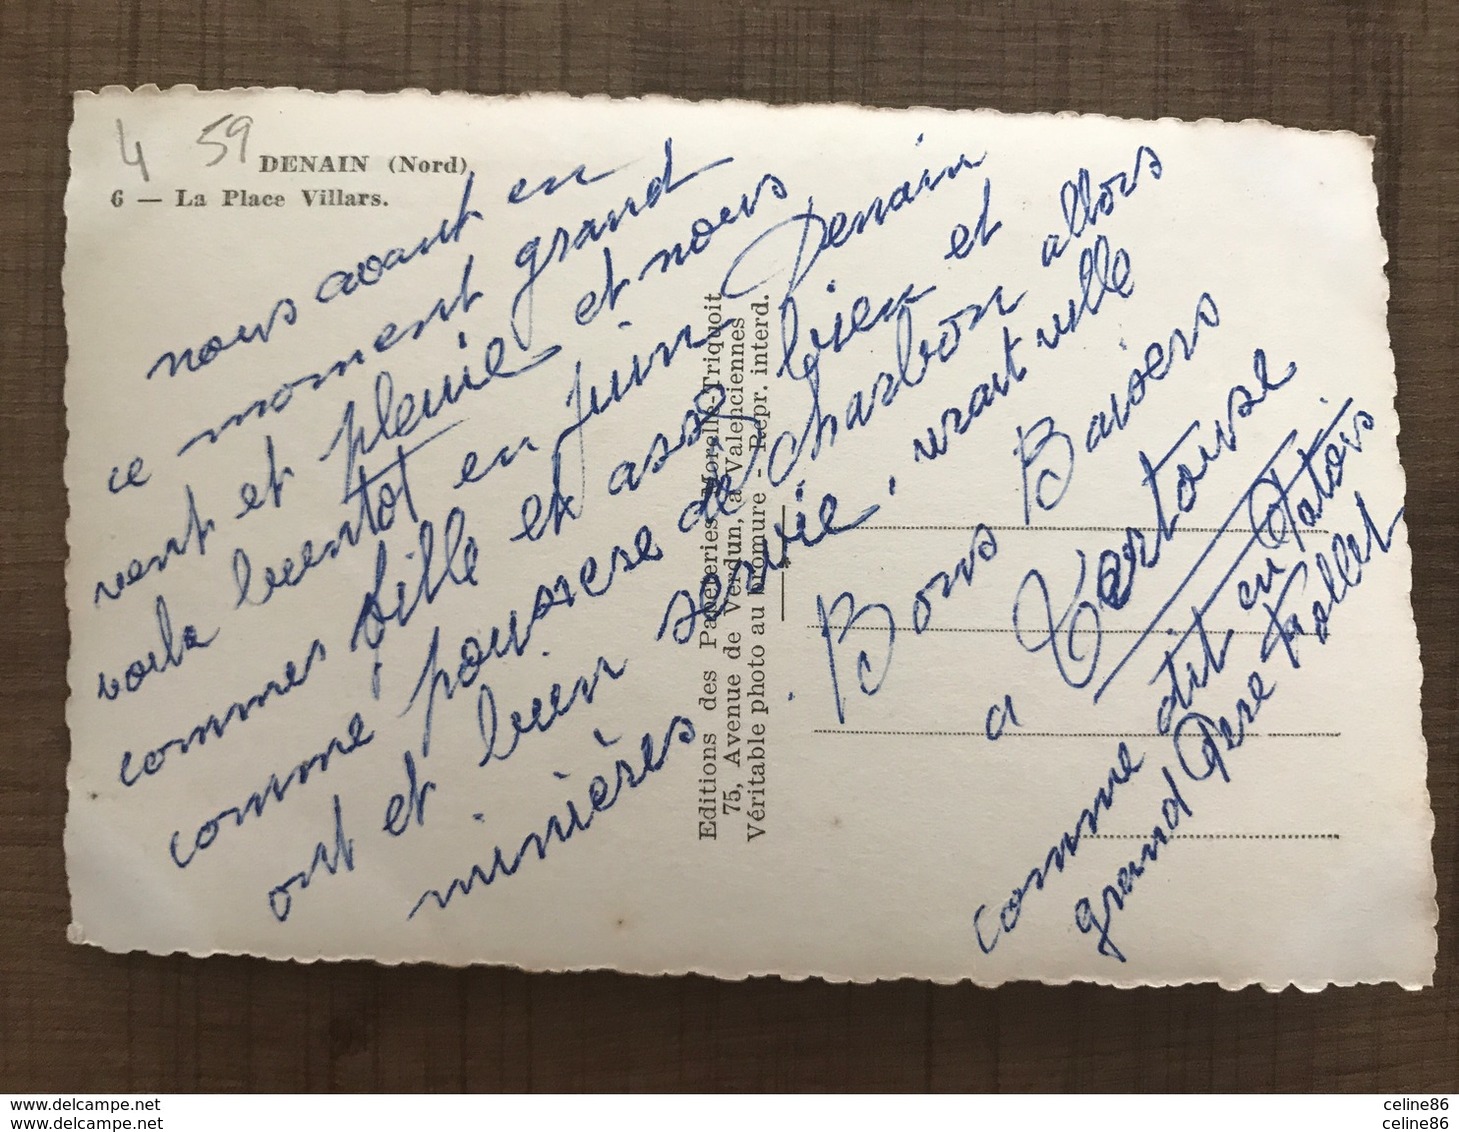 4 59
DENAIN (Nord)
6 — La Place Villars.
nous avant en
ce moment grand
vent et pleuie et nous
voila bientot en juin Denain
commes fille et assé bien et
comme pousiere de charbon allors
ont et bien servie, vrait ville
minières. Bons Baisers
a Tartouse
comme dit en Patois
grand Pere Follet
Editions des Papeteries Morelle-Triquoit
75, Avenue de Verdun, à Valenciennes
Véritable photo au bromure - Repr. interd.
www.delcampe.net
www.delcampe.net
celine86
celine86